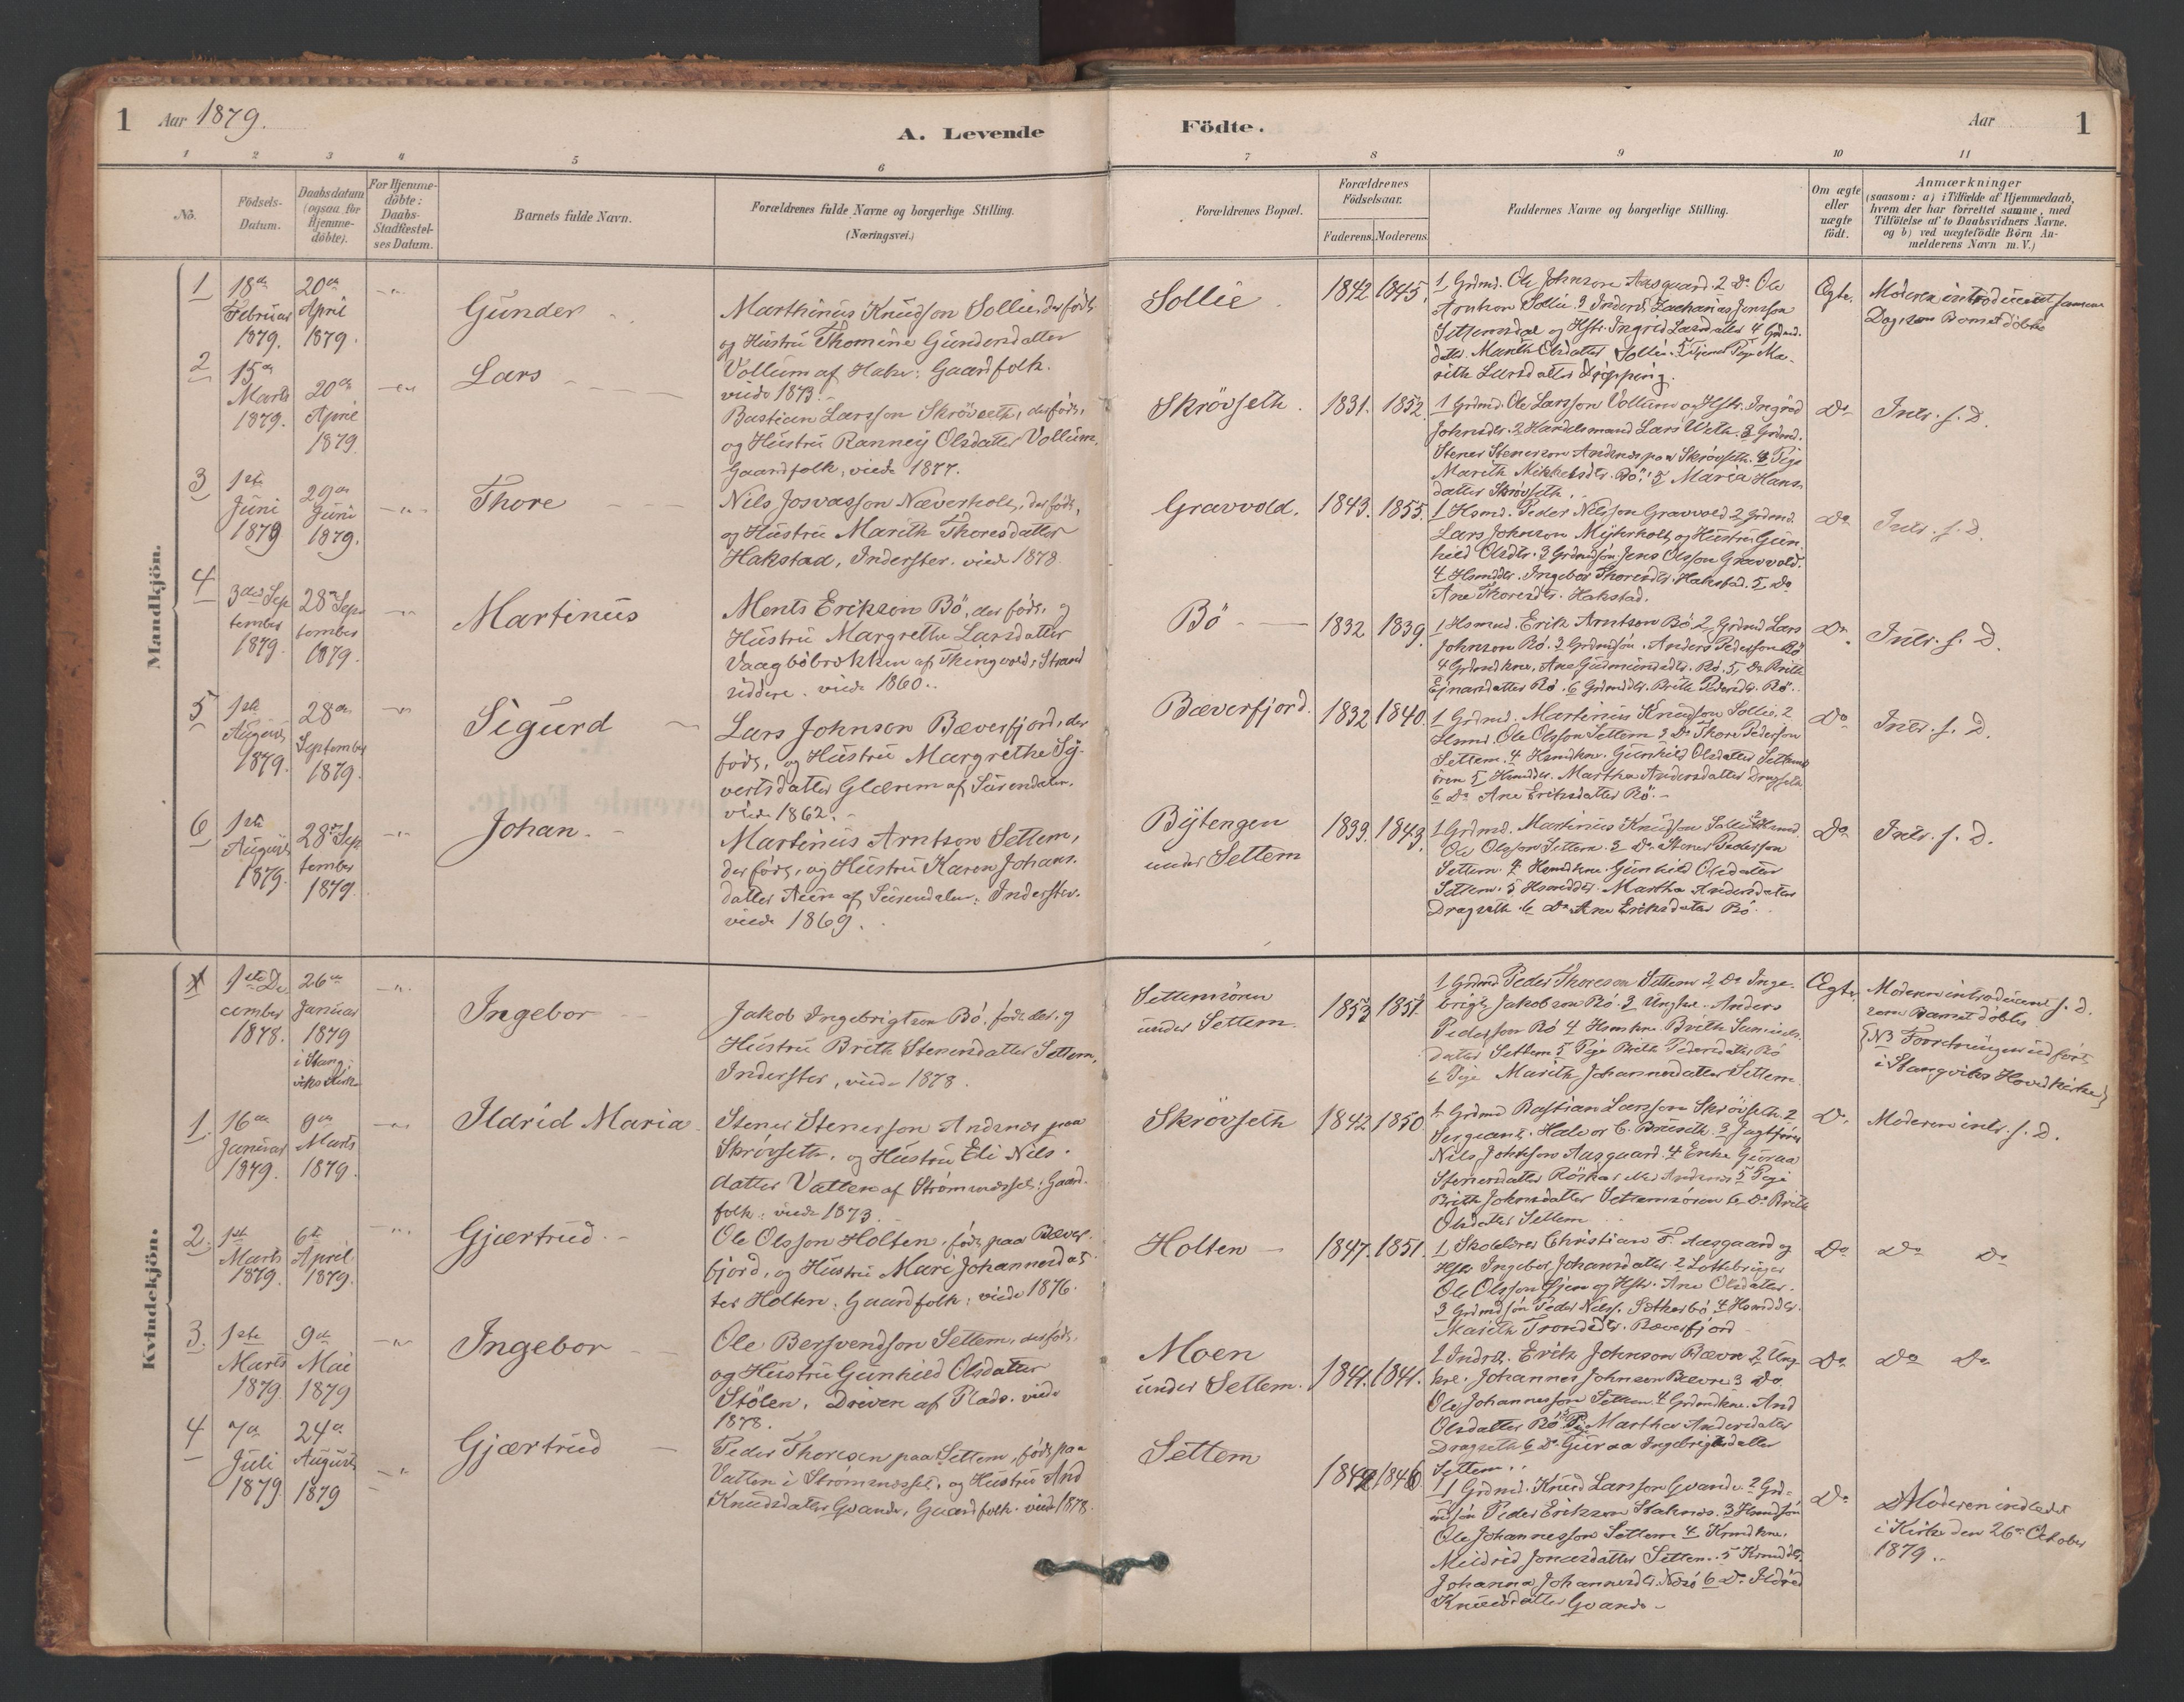 1 Aar 1879.
A. Levende Födte.
Aar 1
1 2 3 4 5 6 7 8 9 10 11
Nö.
Födsels-Datum.
Daabsdatum (ogsaa for Hjemme-döbte).
For Hjemme-döbte: Daabs-Stadfæstel-ses Datum.
Barnets fulde Navn.
Forældrenes fulde Navne og borgerlige Stilling.
(Næringsvei.)
Forældrenes Bopæl.
Forældrenes Födselsaar.
Faderens. Moderens.
Faddernes Navne og borgerlige Stilling.
Om ægte eller uægte födt.
Anmærkninger
(saasom: a) i Tilfælde af Hjemmedaab,
hvem der har forrettet samme, med
Tilföielse af to Daabsvidners Navne.
og b) ved uægtefödte Börn An-
melderens Navn m.V.)
Mandkjön.
1
18de Februar 1879.
20de April 1879.
Gunder
Marthinus Knudson Sollie, der föds,
og Hustru Thomine Gundersdatter
Vollum af Halse: Gaardfolk.
viede 1873.
Sollie
1842 1845.
1 Grdmd. Ole Johnson Aasgaard. 2 Do Ole
Arntson Sollie. 3 Inderst Zacharias Jonsson
Settemsdal og Hstr. Ingrid Larsdatter 4 Grdmd.
datter Marith Olsdatter Sollie. 5 Pige Ma-
rith Larsdatter
Ægte.
Moderen introduceret samme
Dag som Barnet döbtes
2
15de Marts 1879.
20de April 1879
Lars
Bastian Larsson Skrövseth, der föds,
og Hustru Ranney Olsdatter Vollum,
Gaardfolk, viede 1877.
Skrövseth.
1831. 1852.
1 Grdmd. Ole Larsson Vollum og Hstr. Ingrid
Johnsdtr. 2 Handelsmand Lars Weth. 3 Grdmd.
Stener Stenerson Andsnes paa Skrövseth. 4 Pige
Marith Mikkelsdtr. Bö. 5 Maria Hans-
datter Skrövseth.
Do
Intr. s. D.
3
1ste Juni 1879
29de Juni 1879.
Thore
Nils Josvasson Næverholt, der föds,
og Hustru Marith Thoresdatter
Hakstad, Inderster. viede 1878
Gravvold.
1843. 1855.
1 Hsmd. Peder Nilsson Gravvold 2 Grdmd.
Lars Johnson Myhrholt og Hustru Gun-
hild Olsdtr. 3 Grdmdsön Jens Olsson Gravvold.
4 Hsmddtr. Ingebor Thoresdtr. Hakstad. 5 Do
Ane Thoresdtr. Hakstad.
Do
Intr. s. D.
4
3die September 1879.
28de September 1879.
Martinus
Ments Erikson Bö, der föds, og
Hustru Margrethe Larsdatter
Vaagböbrækken af Thingvold, Strand
siddere. viede 1860.
Bö
1832 1839.
1 Hsmd. Erik Arntson Bö. 2 Grdmd Lars
Johnson Bö. 3 Grdmdsön. Anders Pederson Bö
4 Grdmdkne. Ane Gudmundsdtr. Bö. 5 Do Brith
Ejnarsdatter Bö. 6 Grdmddtr. Brith Pedersdtr. Bö.
Do
Intr. s. D.
5
1ste August 1879.
28de September 1879.
Sigurd
Lars Johnson Bæverfjord, der
föds, og Hustru Margrethe Sy-
vertsdatter Glærem af Surendalen.
viede 1862.
Bæverfjord.
1832 1840.
1 Grdmd. Martinus Knudson Sollie. 2
Hsmd. Ole Olsson Settem 3 Do Thore Pederson
Settem. 4 Hsmdkne. Gunhild Olsdatter Settems
ören 5 Hsmddtr. Martha Andersdatter Dragseth
6 Do Ane Eriksdatter Bö.
Do
Intr. s. D.
6
1ste August 1879.
28de September 1879.
Johan.
Martinus Arntson Settem,
der föds, og Hustru Karen Johans-
datter Aune af Surendalen: Inderster.
viede 1869.
Bytengen
under Settem
1839. 1843.
1 Grdmd. Martinus Knudson Sollie 2 Hsmd.
Ole Olsson Settem. 3 Do Stener Pedersson
Settem 4 Hsmdkne. Gunhild Olsdatter
Settem. 5 Hsmddtr. Martha Andersdatter
Dragseth. 6 Do Ane Eriksdatter Bö.
Do
Intr. s. D.
Kvindekjön.
1
1ste December 1878.
26de Januar 1879
i Stang-
viks Kirke
Ingebor
Jakob Ingebrigtson Bö, föds der, og
Hustru Brith Stenersdatter Settem,
Inderster, viede 1878.
Settemsören
under Settem.
1853 1851.
1 Grdmd Peder Thoreson Settem 2 Do Inge-
brigt Jakobson Bö. 3 Ungkr. Anders
Pederson Bö 4 Hsmkne. Brith
datter Settem 5 Pige Brith Pedersdatter Bö
6 Pige Marith Johannesdatter Settem.
Ægte.
Moderen introduceret s. D.
som Barnet döbtes
{NB Forretningen udfört
i Stangviks Hovedkirke}
1.
16de Januar 1879.
9de Marts 1879.
Ildrid Maria
Stener Stenersson Andsnes paa
Skrövseth, og Hustru Eli Nils-
datter Vatten af Strömsnesset: Gaard-
folk: viede 1873.
Skrövseth
1842 1850
1. Grdmd Bastian Larsson Skrövseth. 2
Sergeant. Halvor C. Bruseth. 3 Jagtförer
Nils Johnson Aasgaard. 4 Enke Guroaa
Stenersdatter Andsnes 5 Pige
Brith Johnsdatter Settemsören 6 Do Brith
Olsdatter Settem
Do.
Moderen intr. s. D.
2.
1ste Marts 1879.
6te April 1879.
Gjærtrud.
Ole Olsson Holten, föds paa Bæver-
fjord, og Hustru Mari Johannesdat-
ter Holten: Gaardfolk: viede 1876.
Holten
1847. 1851.
1 Skolelærer Christian F. Aasgaard og
Hstr Ingebor Johansdatter. 2
Ole Olsson Gjen og Hstr. Ane Olsdatter.
3 Grdmdsön Peder Nilss. Sæterbö 4 Hsmddtr.
Marith Trondsdtr. Bæverfjord
Do
Do Do
3.
1ste Marts 1879.
9de Mai 1879
Ingebor
Ole Bersvendson Settem, der föds,
og Hustru Gunhild Olsdatter
Stölen, Drivere af Plads. viede
1878.
Moen
under Settem.
1841. 1841.
1 Indrst. Erik Johnson Bævre 2 Ung-
kre. Johannes Johnson Bævre 3 Do.
Ole Johannesson Settem. 4 Grdmdkne. And
Olsdatter Bö 5 Pige Martha Andersdatter
Dragseth 6 Do Guroa Ingebrigtsdatter
Settem.
Do
Do Do
4
7de Juli 1879
24de August 1879
Gjærtrud
Peder Thoresen paa Settem, föds paa
Vatten i Strömsnesset, og Hustru And
Knudsdatter Qvande, Gaardfolk. viede 1878.
Settem
1842 1846.
1 Grdmd. Knud Larsson Qvande. 2 Grd-
mdsön Peder Erikson Staknes. 3 Hsmdsön
Ole Johannesson Settem 4 Hsmdkne.
Mildrid Jonasdatter Settem. 5 Hsmddtr.
Johanna Johannesdtr. 6 Do. Ildrid
Knudsdatter Qvande
Do
Moderen indledet
i Kirke den 26de October
1879.